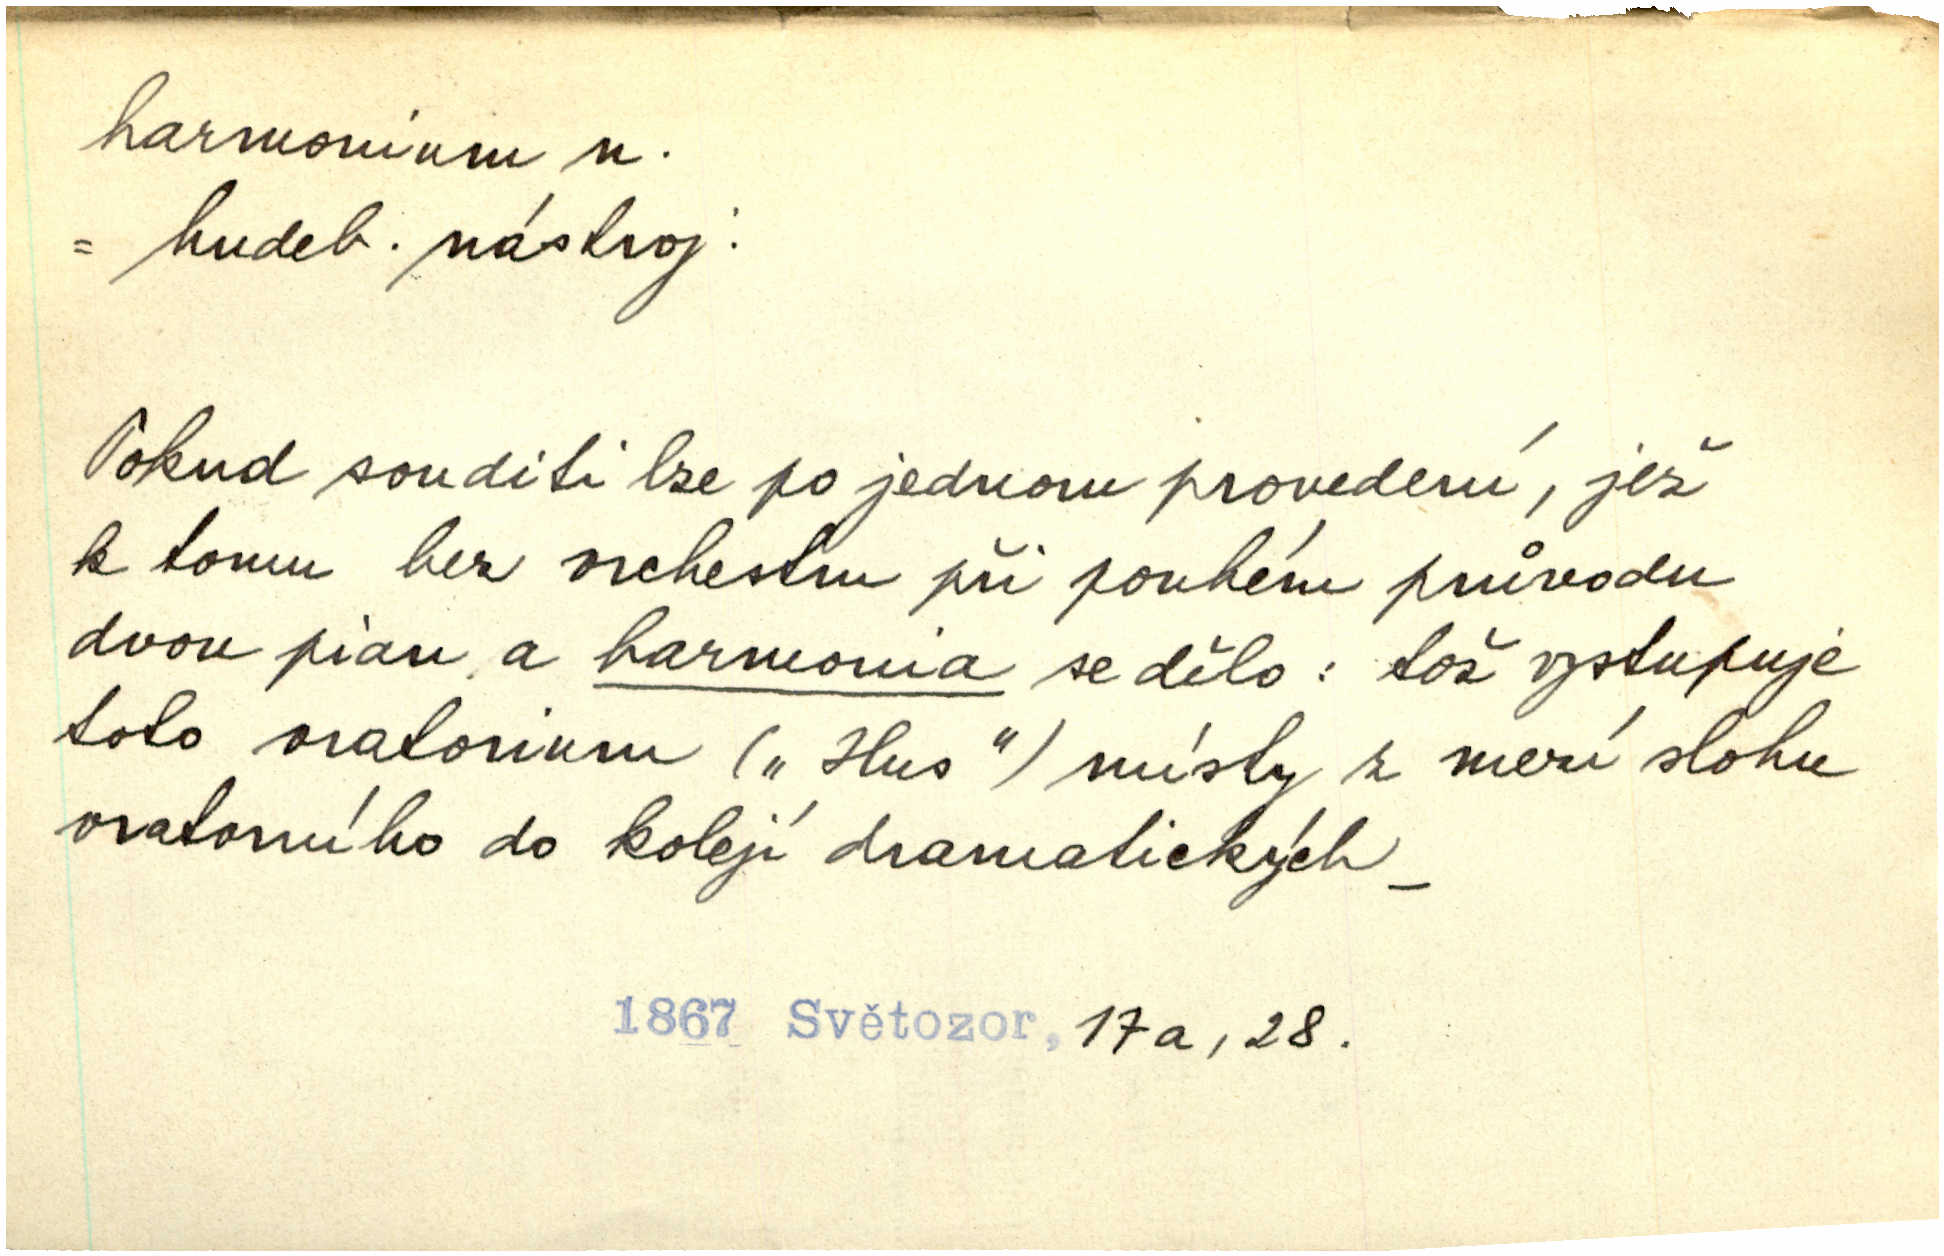 harmonium n.
= hudeb. nástroj:
Pokud souditi lze po jednom provedení, jež
k tomu bez orchestru při pouhém průvodu
dvou pian a harmonia se dělo: tož vystupuje
toto oratorium („Hus“) místy z mezí slohu
oratorního do kolejí dramatických_
1867 Světozor, 17a, 28.